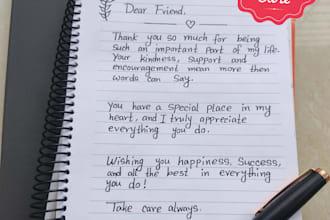 Dear Friend,
Thank you so much for being
such an important part of my life.
Your kindness, support and
encouragement mean more then
words can say.
You have a special place in my
heart, and I truly appreciate
everything you do.
Wishing you happiness, success,
and all the best in everything
you do!
Take care always.